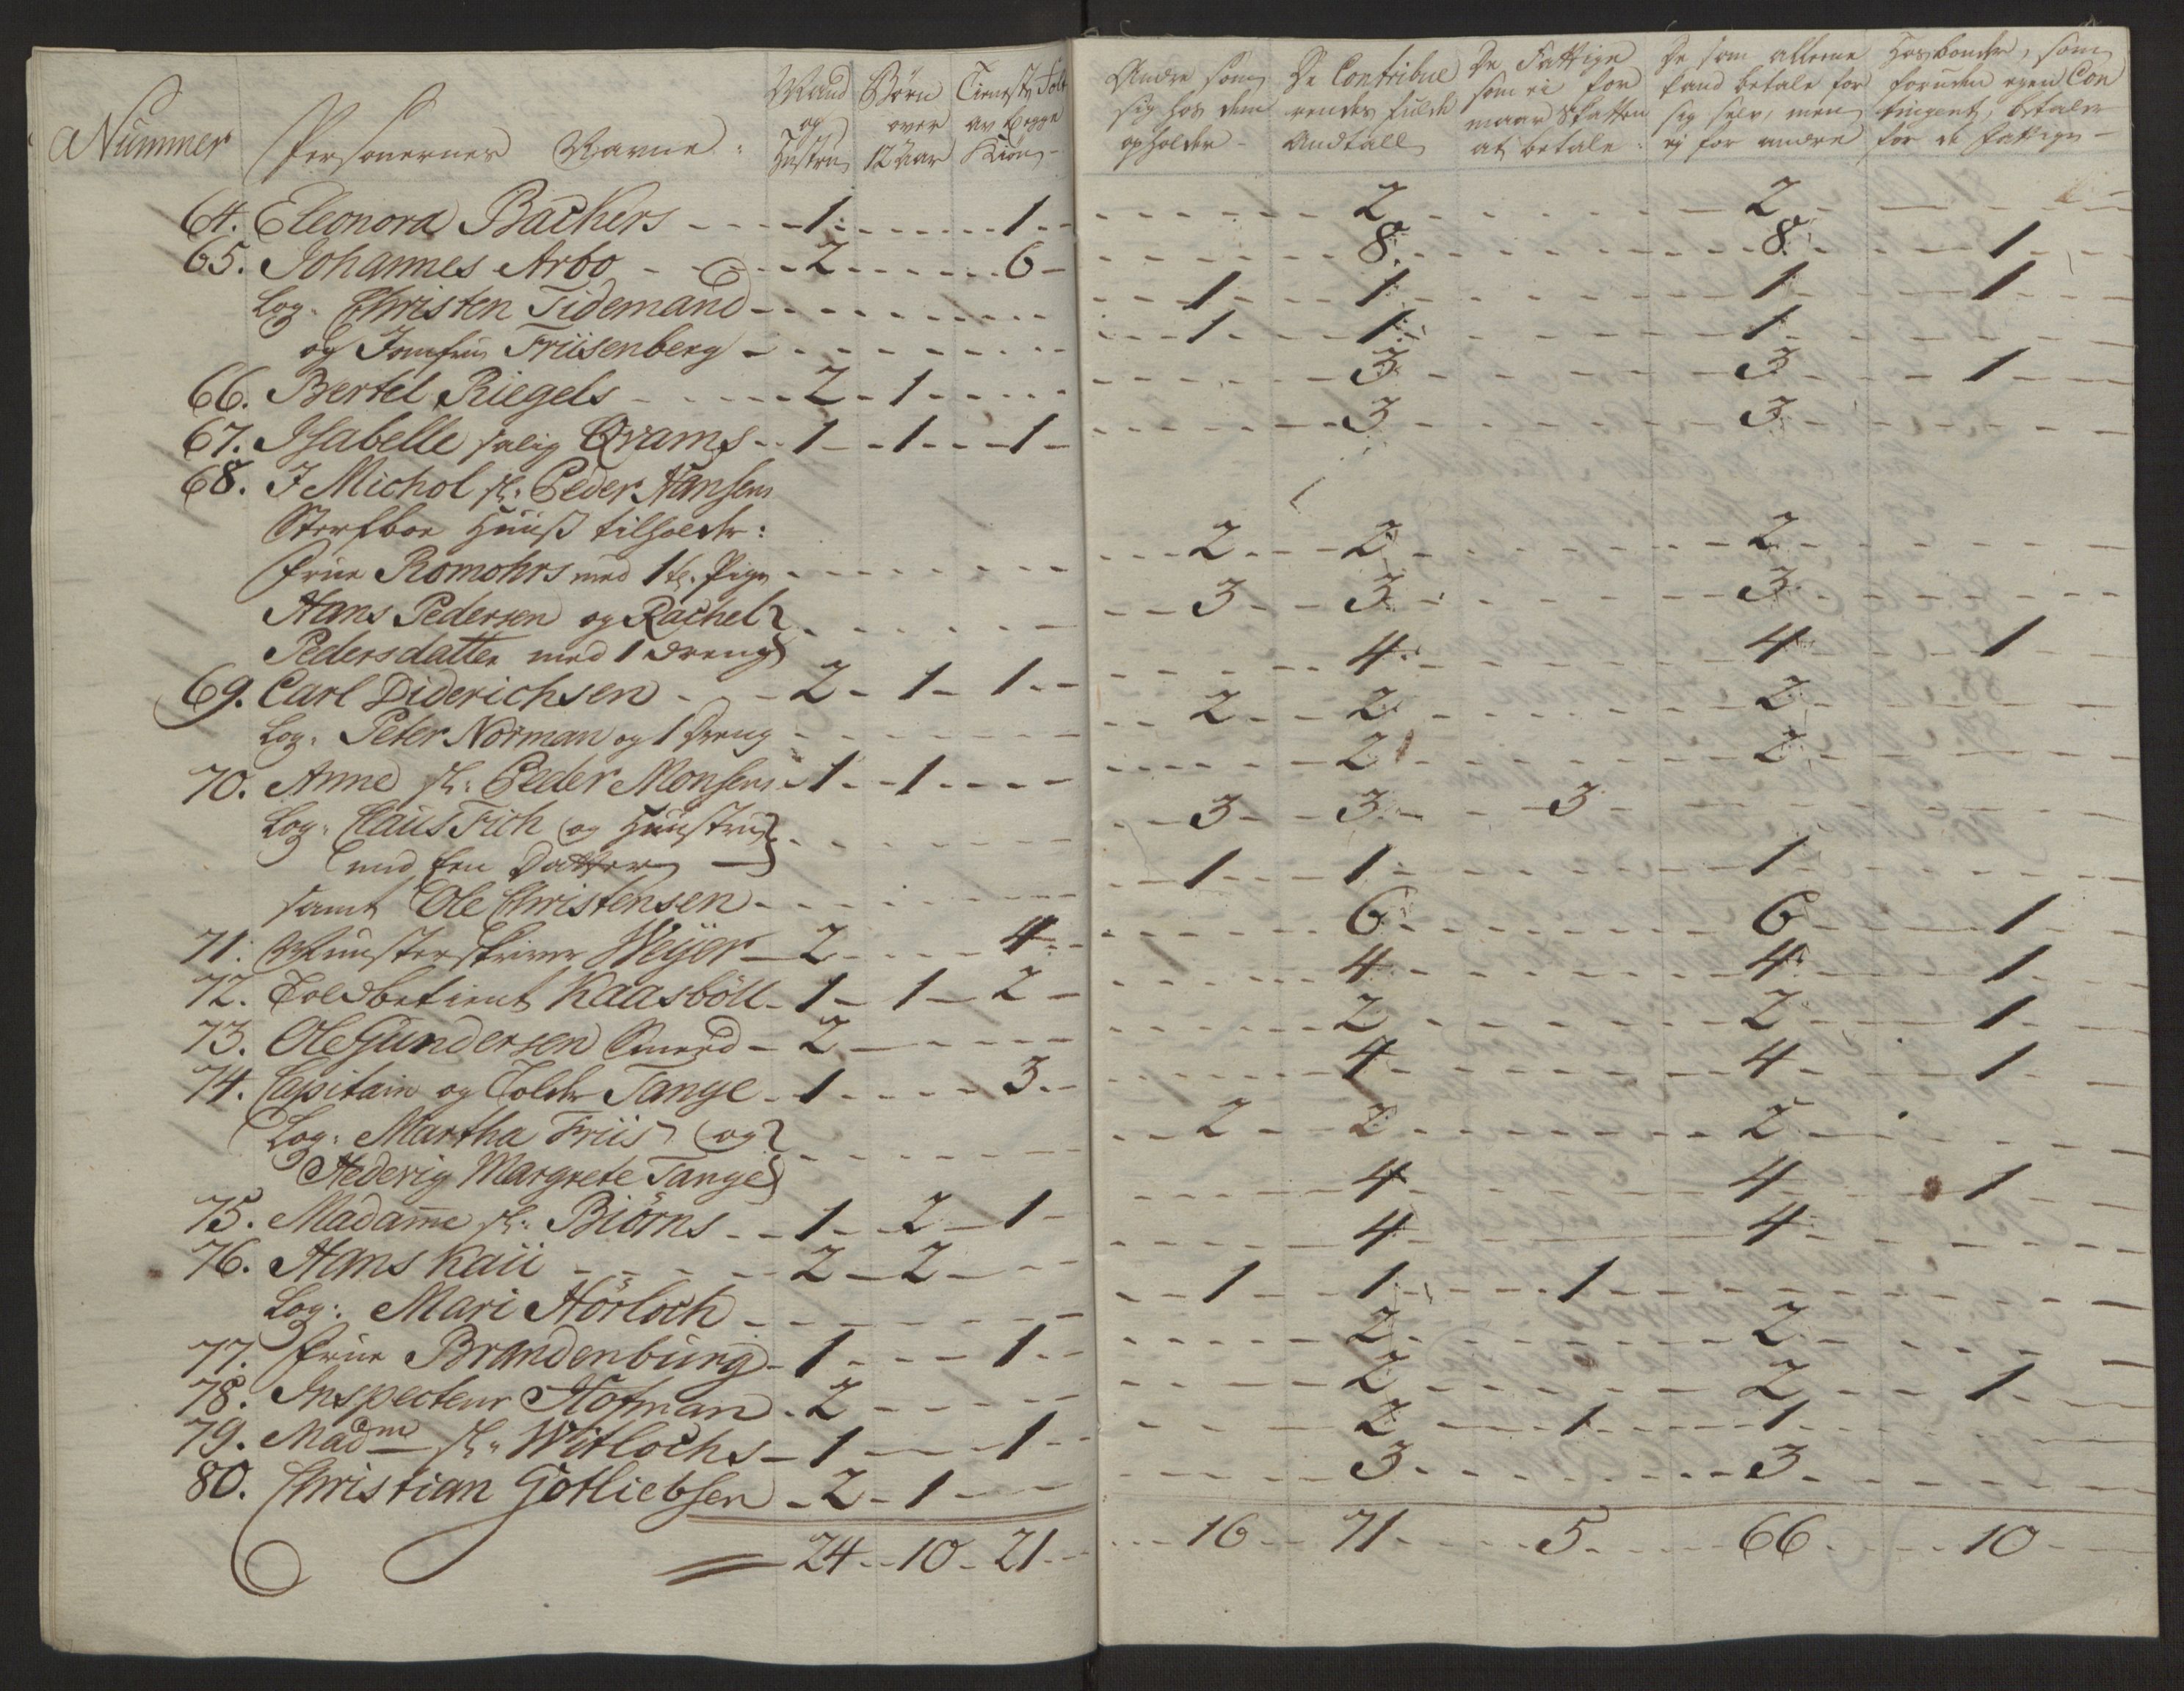 Nummer Personernes Navne: Mand og Hustru Børn over 12 aar Tieneste Folk av begge Kiøn Andre som sig hos dem opholder De Contribuerendes fulde Andtall De Fattige som ei for maar Skatten at betale: De som alleene kand betale for sig selv, men ej for andre Hosbonder, som foruden egen Contingent, betaler for de fattige
64. Eleonora Bachers 1 1 2 2
65. Johannes Arbo 2 6 8 8 1
Log. Christen Tidemand 1 1 1 1
og Jomfru Friisenberg 1 1 1
66. Bertel Riegels 2 1 3 3 1
67. Isabelle salig Qvams 1 1 1 3 3
68. I Michol sl: Peder Hansens
Sterfboe Huuß tilholder:
frue Romohrs med 1 t. Pige 2 2 2
Hans Pedersen og Rachel
Pedersdatter med 1 dreng 3 3 3
69. Carl Diderichsen 2 1 1 4 4 1
Log. Peter Norman og 1 dreng 2 2 2
70. Anne sl: Peder Monsens 1 1 2 2
Log. Claus Fich og Huustru
med Een Datter 3 3 3
samt Ole Christensen 1 1 1
71. Mynsterskriver Weyer 2 4 6 6 1
72. Toldbetient Kaasböll 1 1 2 4 4 1
73. Ole Gundersen Smed 2 2 2 1
74. Capitain og Tolder Tange 1 3 4 4 1
Log: Martha Friis og
Hedevig Margrete Tange 2 2 2
75. Madame sl: Biörns 1 2 1 4 4 1
76. Hans Kaii 2 2 4 4
Log: Mari Hörloch 1 1 1
77. frue Brandenburg 1 1 2 2
78. Inspecteur Hofman 2 2 2 1
79. Madme sl: Witlochs 1 1 2 1 1
80. Christian Gotliebsen 2 1 3 3
24 10 21 16 71 5 66 10